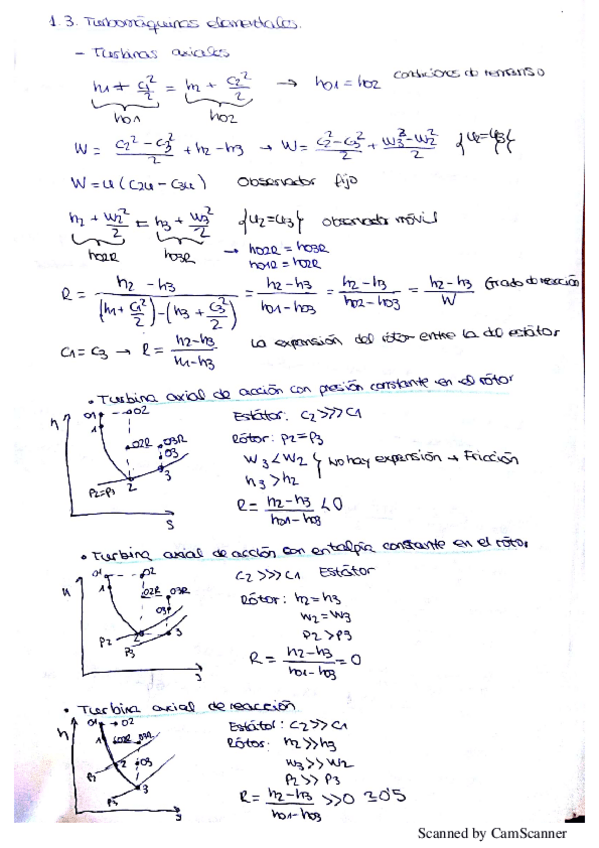 1.3. Turbomáquinas elementales.
- Turbinas axiales
h1 + c1²/2 = h2 + c2²/2 → h01 = h02 condiciones de remanso
h01 h02
W = (c2² - c3²)/2 + h2 - h3 → W = (c2² - c3²)/2 + (w3² - w2²)/2 {u2=u3}
W = u (c2u - c3u) Observador fijo
h2 + w2²/2 = h3 + w3²/2 {u2=u3} observador móvil
h02R h03R → h02R = h03R
h01R = h02R
R = (h2 - h3)/((h1 + c1²/2) - (h3 + c3²/2)) = (h2 - h3)/(h01 - h03) = (h2 - h3)/(h02 - h03) = (h2 - h3)/W Grado de reacción
c1 = c3 → R = (h2 - h3)/(h1 - h3) La expansión del rótor entre la del estátor
• Turbina axial de acción con presión constante en el rótor
h 01 02 Estátor: c2 >>> c1
1 02R 03R Rótor: p2 = p3
03 w3 < w2 } No hay expansión → Fricción
P2=P3 2 3 h3 > h2
s R = (h2 - h3)/(h01 - h03) < 0
• Turbina axial de acción con entalpía constante en el rótor
h 01 02 c2 >>> c1 Estátor
1 02R 03R Rótor: h2 = h3
03 w2 = w3
P2 2 3 p2 > p3
P3 R = (h2 - h3)/(h01 - h03) = 0
s
• Turbina axial de reacción
h 01 → 02 Estátor: c2 >> c1
1 02R 03R Rótor: h2 >> h3
2 03 w3 >> w2
3 p2 >> p3
P3 R = (h2 - h3)/(h01 - h03) >> 0
s
Scanned by CamScanner